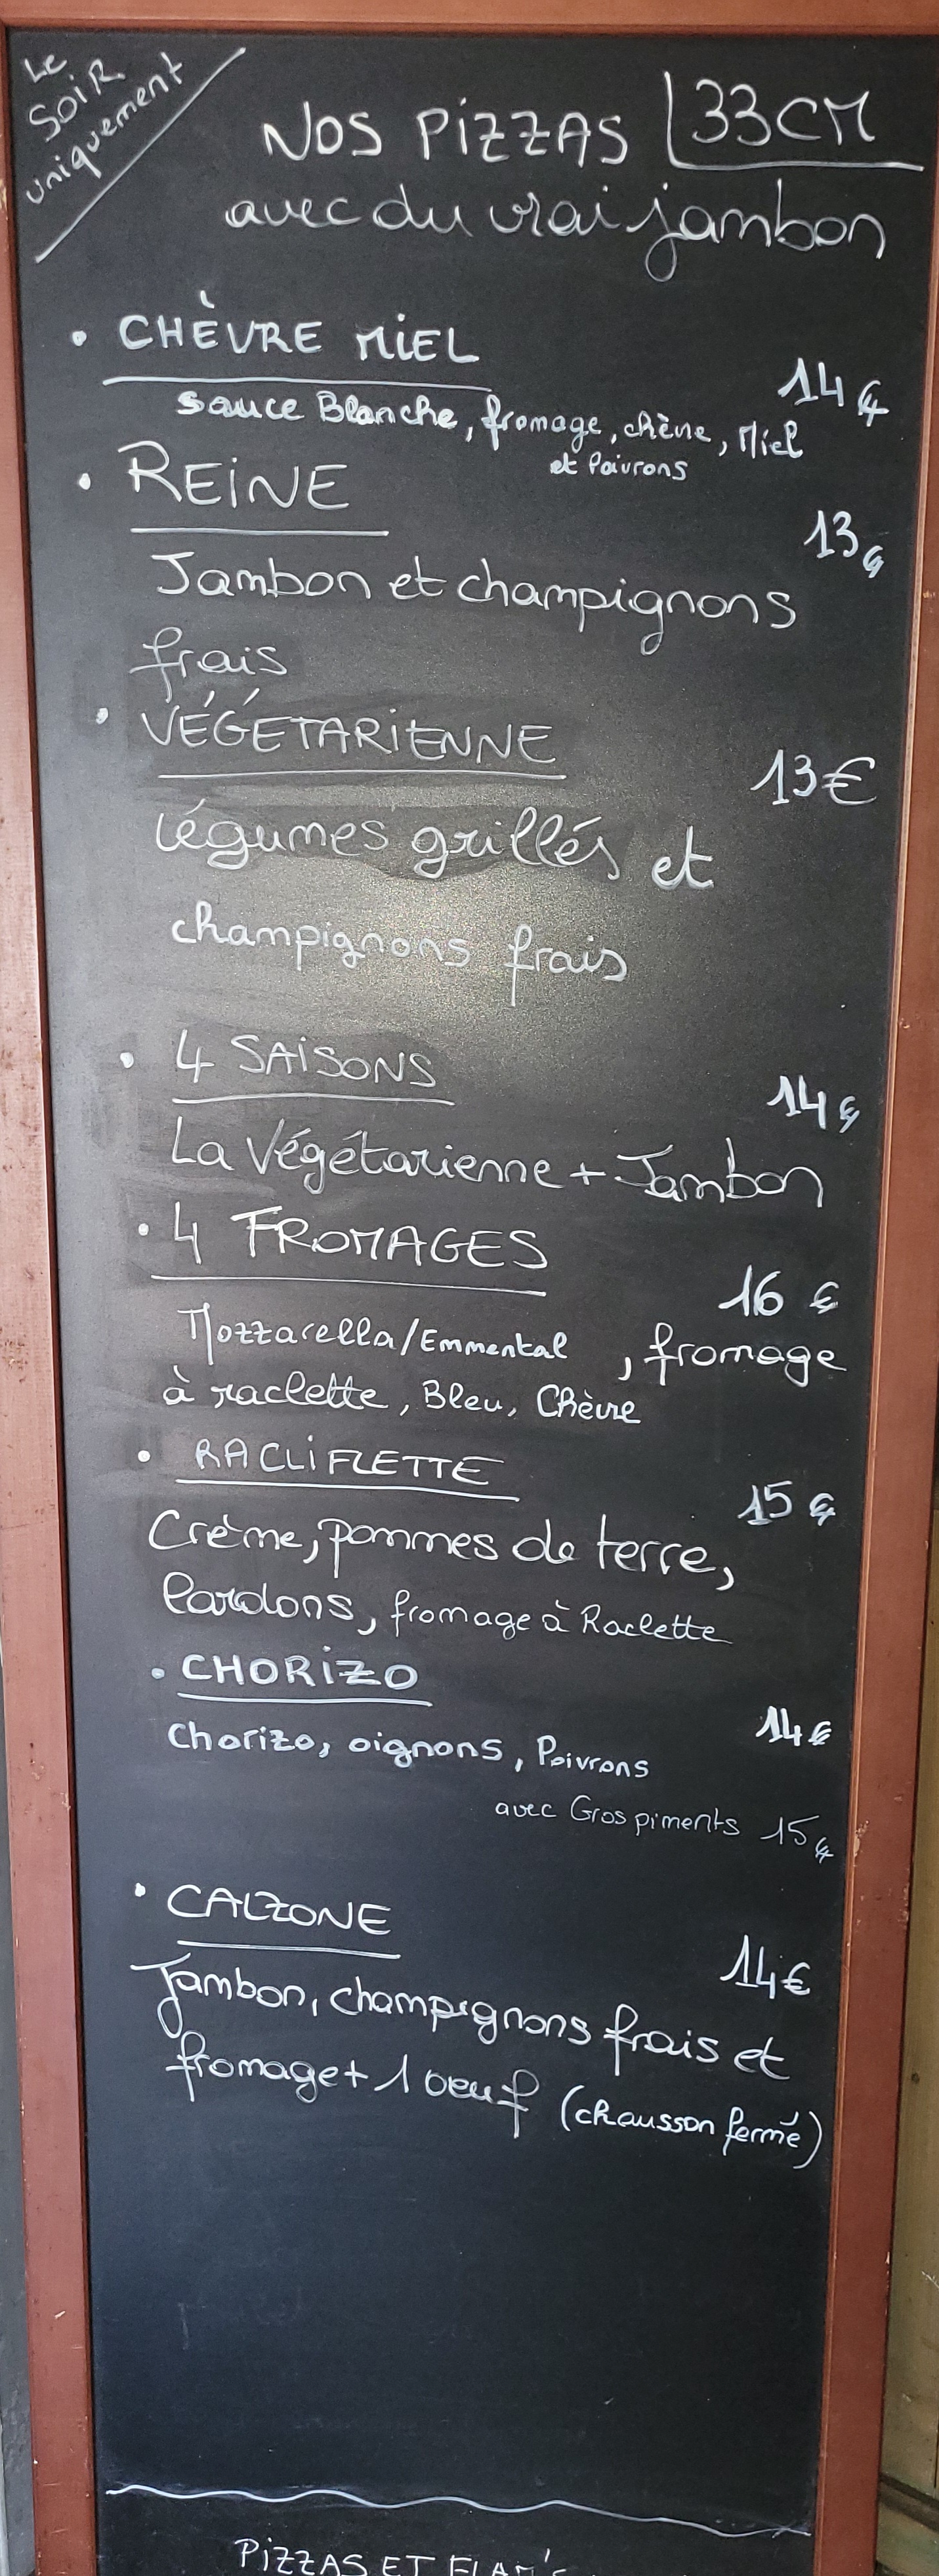 Le
SOIR
uniquement
NOS PIZZAS 33CM
avec du vrai jambon
• CHÈVRE MIEL
14€
sauce Blanche, fromage, chèvre, Miel
et Poivrons
• REINE
13€
Jambon et champignons
frais
• VÉGÉTARIENNE
13€
légumes grillés et
champignons frais
• 4 SAISONS
14€
La Végétarienne + Jambon
• 4 FROMAGES
16 €
Mozzarella/Emmental , fromage
à raclette, Bleu, Chèvre
• RACLIFLETTE
15 €
Crème, pommes de terre,
Lardons, fromage à Raclette
• CHORIZO
14€
Chorizo, oignons, Poivrons
avec Gros piments 15€
• CALZONE
14€
Jambon, champignons frais et
fromage + 1 oeuf (chausson fermé)
PIZZAS ET FLAM'S